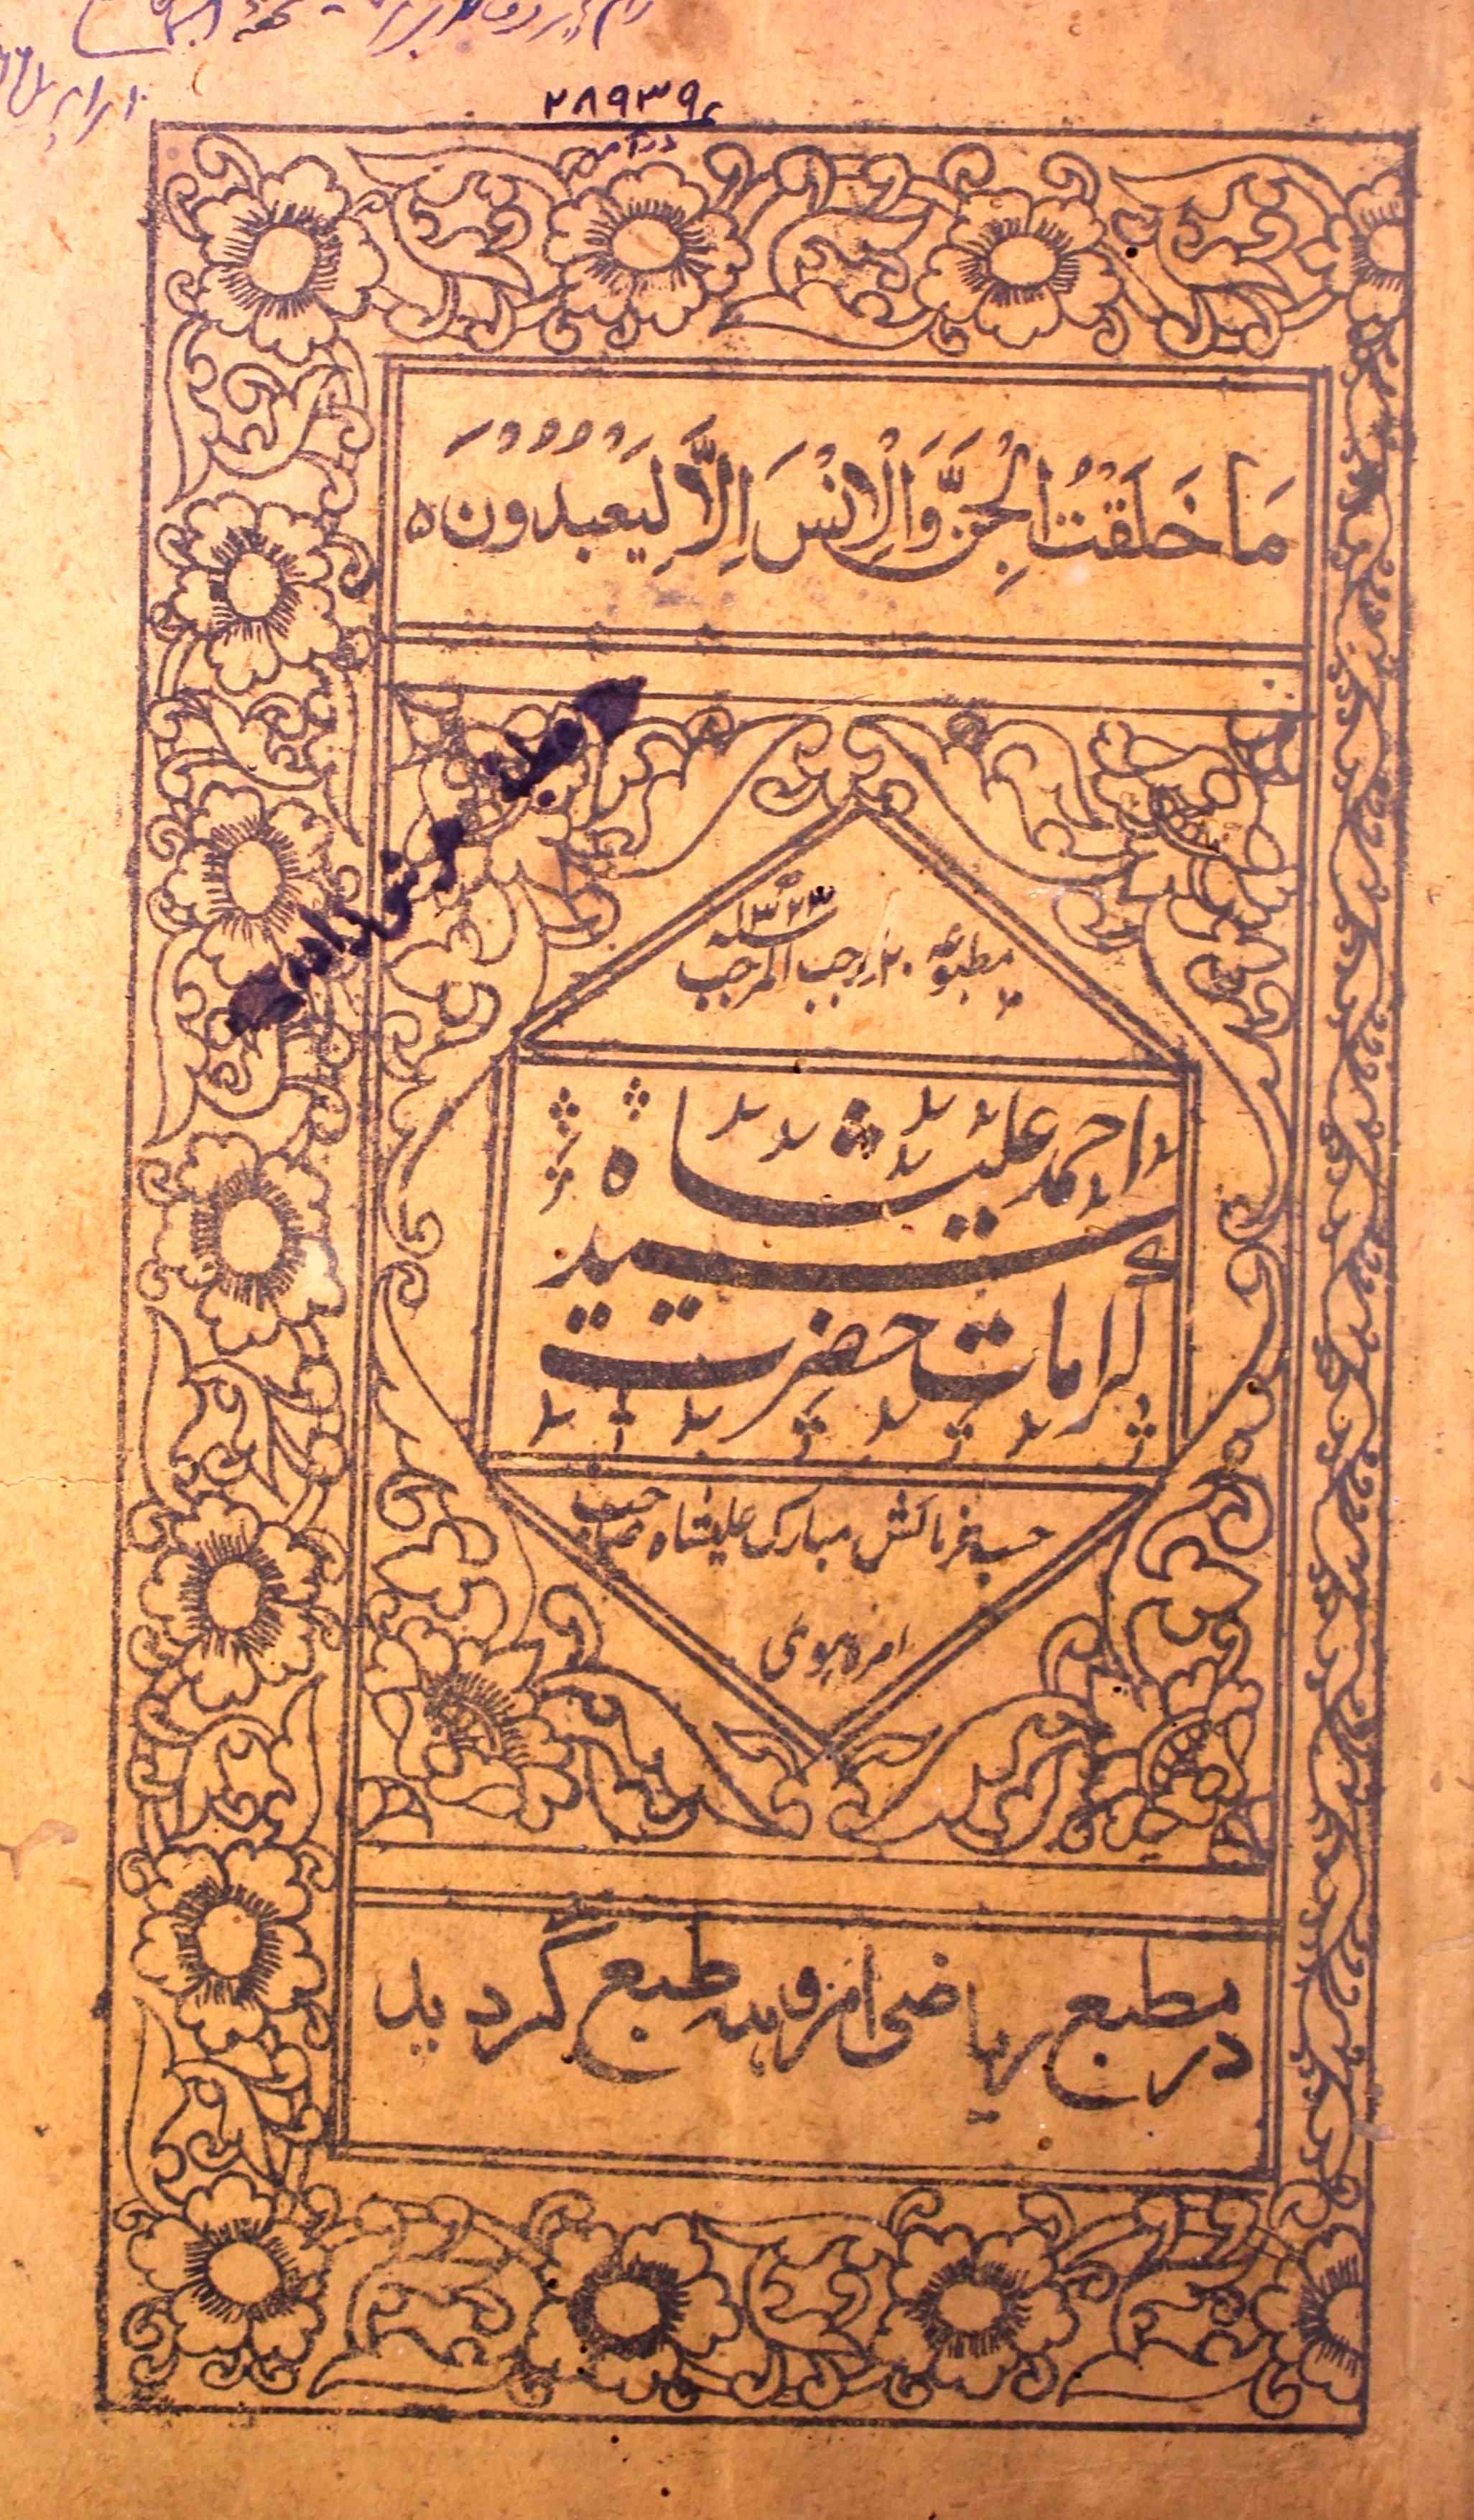 ۲۸۹۳۹
مَا خَلَقْتُ الْجِنَّ وَالْاِنْسَ اِلَّا لِيَعْبُدُوْنَ ہ
۱۳۲۳
مطبوعہ ۲۰ رجب المرجب
احمد علیشاہ
سید
کرامات حضرت
حسب فرمائش مبارک علیشاہ صاحب
امروہوی
در مطبع ریاضی امروہہ طبع گردید